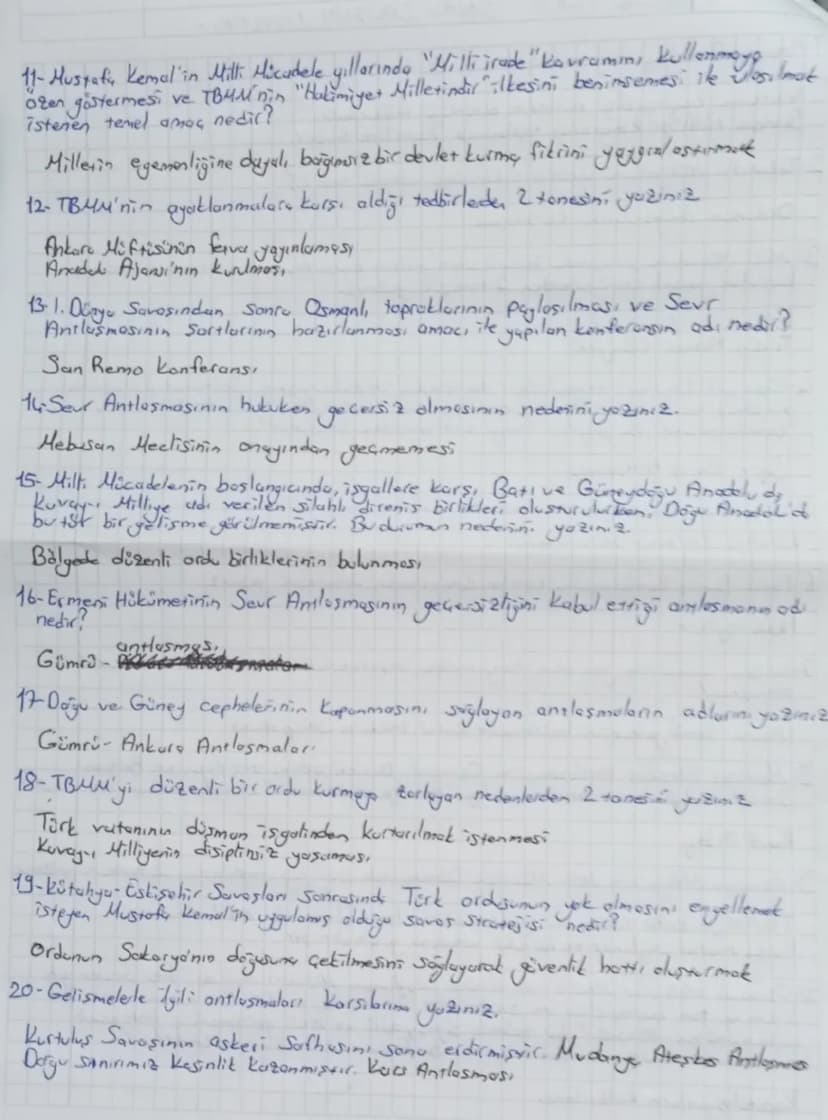 11- Mustafa Kemal'in Milli Mücadele yıllarında "Milli irade" kavramını kullanmaya
özen göstermesi ve TBMM'nin "Hakimiyet Milletindir" ilkesini benimsemesi ile ulaşılmak
istenen temel amaç nedir?
Milletin egemenliğine dayalı, bağımsız bir devlet kurma fikrini yaygınlaştırmak
12- TBMM'nin ayaklanmalara karşı aldığı tedbirlerden 2 tanesini yazınız
Ankara Müftisinin fetva yayınlaması
Anadolu Ajansı'nın kurulması
13- 1. Dünya Savaşından sonra Osmanlı topraklarının paylaşılması ve Sevr
Antlaşmasının şartlarının hazırlanması amacı ile yapılan konferansın adı nedir?
San Remo Konferansı
14- Sevr Antlaşmasının hukuken geçersiz olmasının nedenini yazınız.
Mebusan Meclisinin onayından geçmemesi
15- Milli Mücadelenin başlangıcında, işgallere karşı Batı ve Güneydoğu Anadolu'da
Kuvay-ı Milliye adı verilen silahlı direniş birlikleri oluşturulurken, Doğu Anadolu'da
bu tür bir gelişme görülmemiştir. Bu durumun nedenini yazınız.
Bölgede düzenli ordu birliklerinin bulunması
16- Ermeni Hükümetinin Sevr Antlaşmasının geçersizliğini kabul ettiği antlaşmanın adı
nedir?
Gümrü - antlaşması
17- Doğu ve Güney cephelerinin kapanmasını sağlayan antlaşmaların adlarını yazınız
Gümrü - Ankara Antlaşmaları
18- TBMM'yi düzenli bir ordu kurmaya zorlayan nedenlerden 2 tanesini yazınız
Türk vatanının düşman işgalinden kurtarılmak istenmesi
Kuvay-ı Milliyenin disiplinsiz yaşaması
19- Kütahya-Eskişehir Savaşları sonrasında Türk ordusunun yok olmasını engellemek
isteyen Mustafa Kemal'in uygulamış olduğu savaş stratejisi nedir?
Ordunun Sakarya'nın doğusuna çekilmesini sağlayarak güvenlik hattı oluşturmak
20- Gelişmelerle ilgili antlaşmaları karşılarına yazınız.
Kurtuluş Savaşının askeri safhasını sona erdirmiştir. Mudanya Ateşkes Antlaşması
Doğu sınırımız kesinlik kazanmıştır. Kars Antlaşması